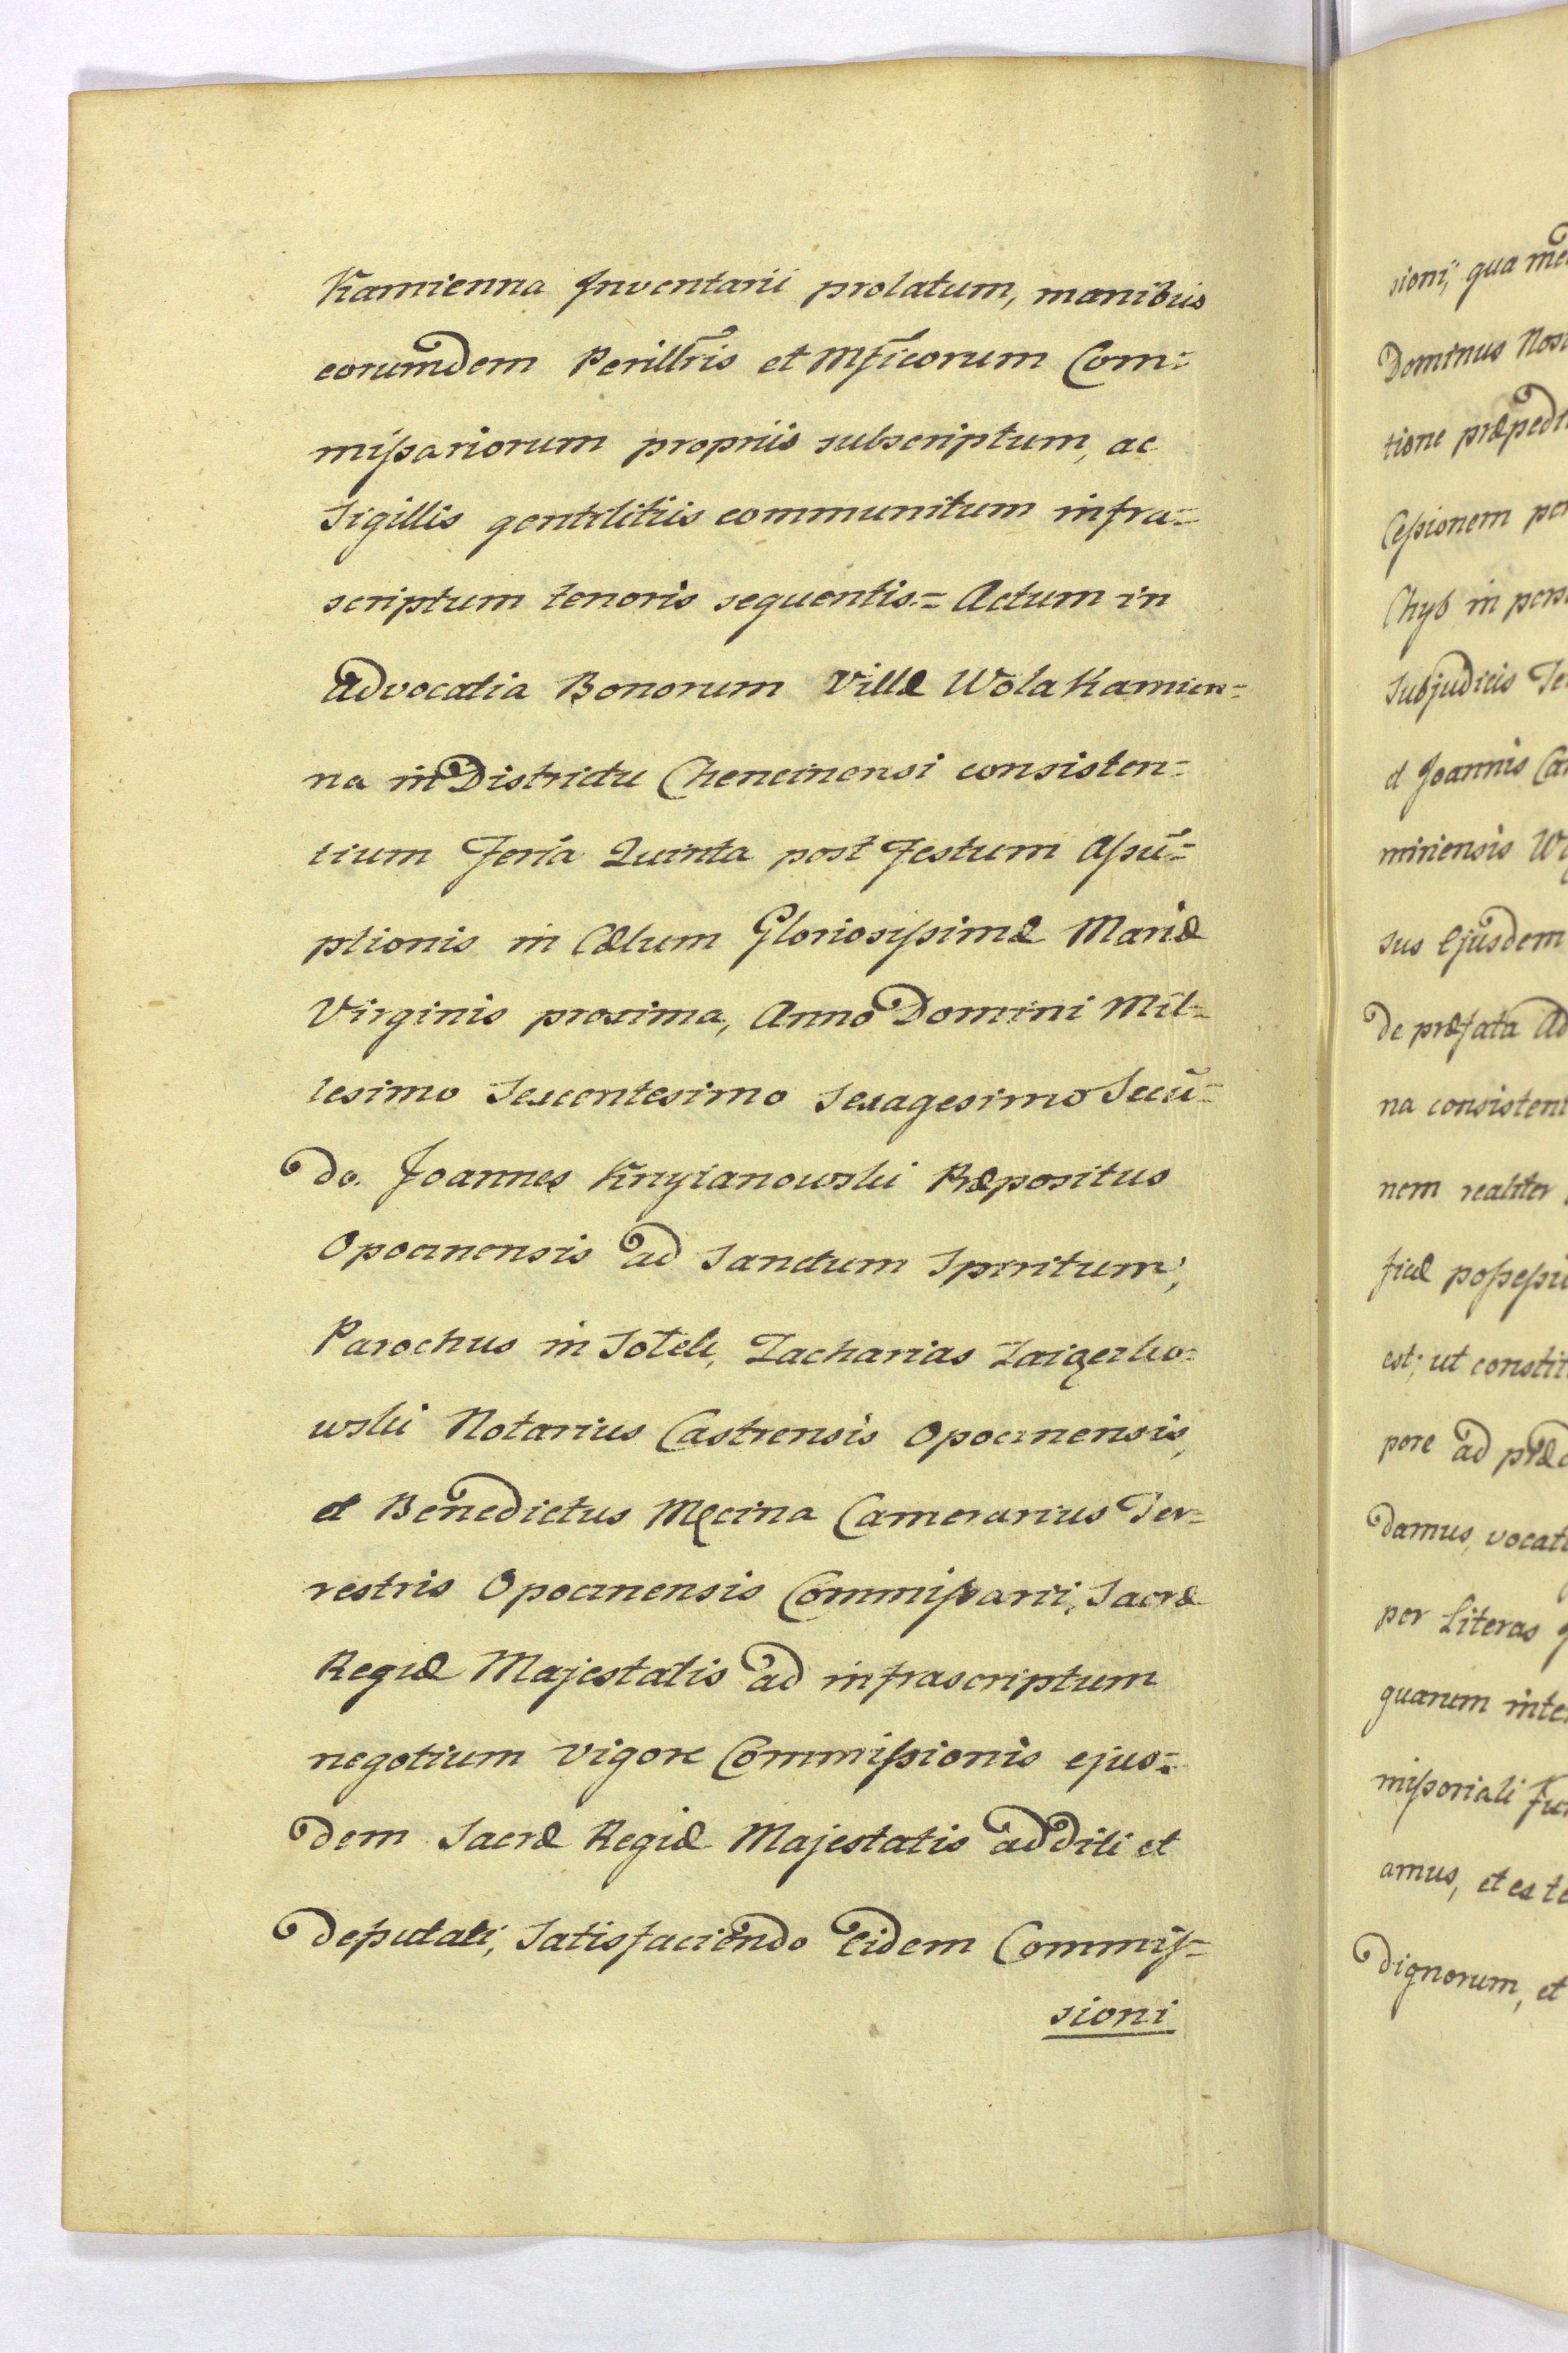 Kamienna Inventarii prolatum, manibus
eorumdem Perillris et Mficorum Com=
missariorum propriis subscriptum, ac
Sigillis gentilitiis communitum infra=
scriptum tenoris sequentis.= Actum in
Advocatia Bonorum Villæ Wola Kamien=
na in Districtu Chencinensi consisten=
tium Feria Quinta post Festum Assu=
ptionis in Cælum Gloriosissimæ Mariæ
Virginis proxima, Anno Domini Mil=
lesimo Sexcentesimo Sexagesimo Secū=
do. Joannes Krzyianowski Præpositus
Opocznensis ad Sanctum Spiritum,
Parochus in Sotek, Zacharias
wski Notarius Castrensis Opocznensis,
et Benedictus Męcina Camerarius Ter=
restris Opocznensis Commissarii, Sacræ
Regiæ Majestatis ad infrascriptum
negotium vigore Commissionis ejus=
dem Sacræ Regiæ Majestatis additi et
deputati, Satisfaciendo Eidem Commis=
sioni
sioni, qua
Dominus
tione
Cessionem
Chyb in
Subjudicis
et Joannis
miriensis
sus Ejusdem
de præfata
na
nem realiter
ficæ
est; ut
pore ad
damus,
per Literas
quarum
missoriali
amus, et ex
dignorum, et